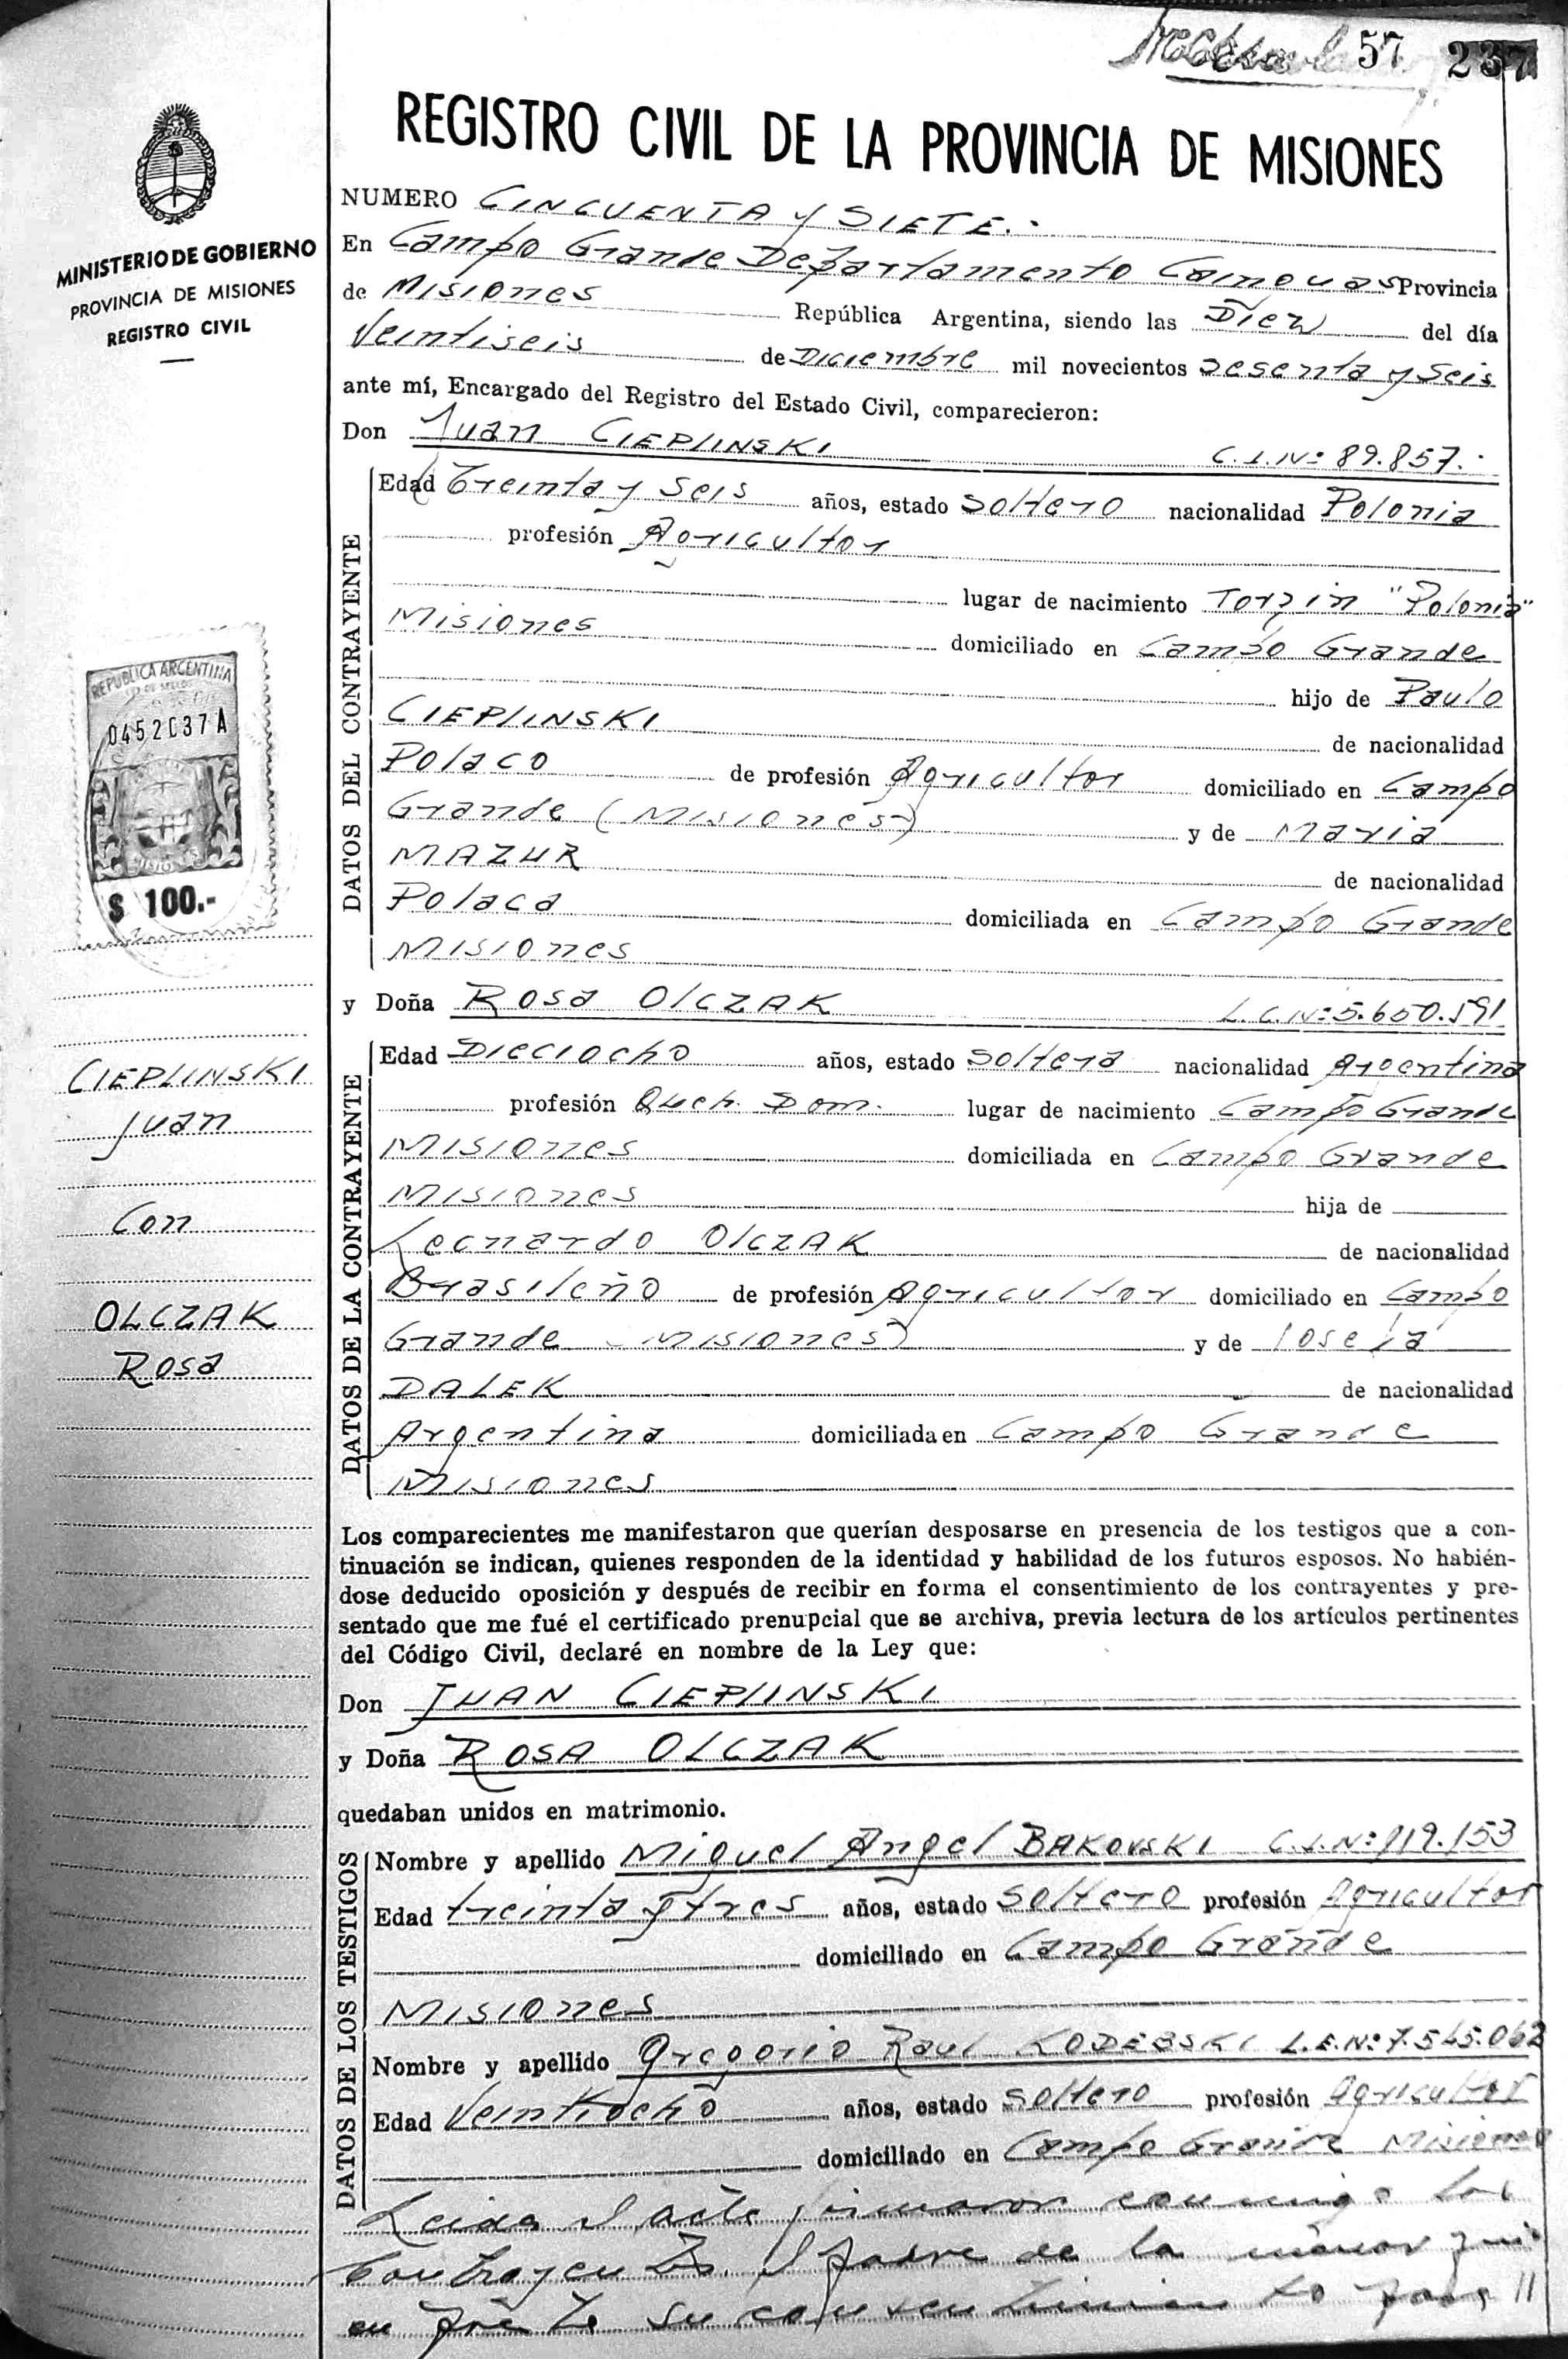 57 237
REGISTRO CIVIL DE LA PROVINCIA DE MISIONES
MINISTERIO DE GOBIERNO
PROVINCIA DE MISIONES
REGISTRO CIVIL
REPUBLICA ARGENTINA
0452037 A
$ 100.-
CIEPLINSKI
Juan
Con
OLCZAK
Rosa
NUMERO CINCUENTA y SIETE.-
En Campo Grande Departamento Cainguas Provincia
de Misiones República Argentina, siendo las Diez del día
Veintiseis de Diciembre mil novecientos Sesenta y Seis
ante mí, Encargado del Registro del Estado Civil, comparecieron:
Don Juan CIEPLINSKI C.I.Nº 89.857.-
DATOS DEL CONTRAYENTE
Edad Treinta y Seis años, estado Soltero nacionalidad Polonia
profesión Agricultor
lugar de nacimiento "Polonia"
Misiones domiciliado en Campo Grande
hijo de Paulo
CIEPLINSKI de nacionalidad
Polaco de profesión Agricultor domiciliado en Campo
Grande (Misiones) y de Maria
MAZUR de nacionalidad
Polaca domiciliada en Campo Grande
Misiones
y Doña Rosa OLCZAK L.C.Nº 5.650.591
DATOS DE LA CONTRAYENTE
Edad Dieciocho años, estado Soltera nacionalidad Argentina
profesión Queh. Dom. lugar de nacimiento Campo Grande
Misiones domiciliada en Campo Grande
Misiones hija de
Leonardo OLCZAK de nacionalidad
Brasileño de profesión Agricultor domiciliado en Campo
Grande Misiones) y de Josefa
DALEK de nacionalidad
Argentina domiciliada en Campo Grande
Misiones
Los comparecientes me manifestaron que querían desposarse en presencia de los testigos que a con-
tinuación se indican, quienes responden de la identidad y habilidad de los futuros esposos. No habién-
dose deducido oposición y después de recibir en forma el consentimiento de los contrayentes y pre-
sentado que me fué el certificado prenupcial que se archiva, previa lectura de los artículos pertinentes
del Código Civil, declaré en nombre de la Ley que:
Don JUAN CIEPLINSKI
y Doña ROSA OLCZAK
quedaban unidos en matrimonio.
DATOS DE LOS TESTIGOS
Nombre y apellido Miguel Angel BAKOVSKI C.I.Nº 119.153
Edad treinta y tres años, estado Soltero profesión Agricultor
domiciliado en Campo Grande
Misiones
Nombre y apellido Gregorio Raul KODEBSKI L.E.Nº 7.545.062
Edad Veintiocho años, estado Soltero profesión Agricultor
domiciliado en Campo Grande Misiones
Leida el acta firmaron conmigo los
Contrayentes. El padre de la menor qui
en prestó su consentimiento para //